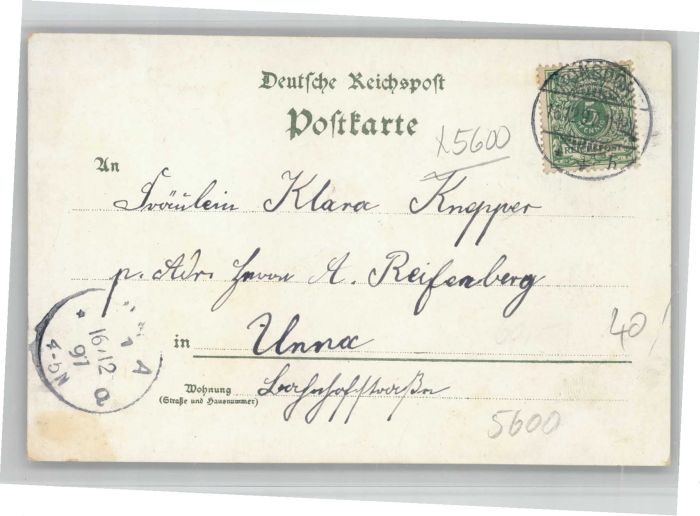 Deutsche Reichspost
Postkarte
x5600
An
Fräulein Klara Knepper
p. Adr. Herrn A. Reifenberg
in Unna
40
Wohnung
(Straße und Hausnummer)
Bahnhofstraße
5600
5
REICHSPOST
16/12
97
4-5N
A
a